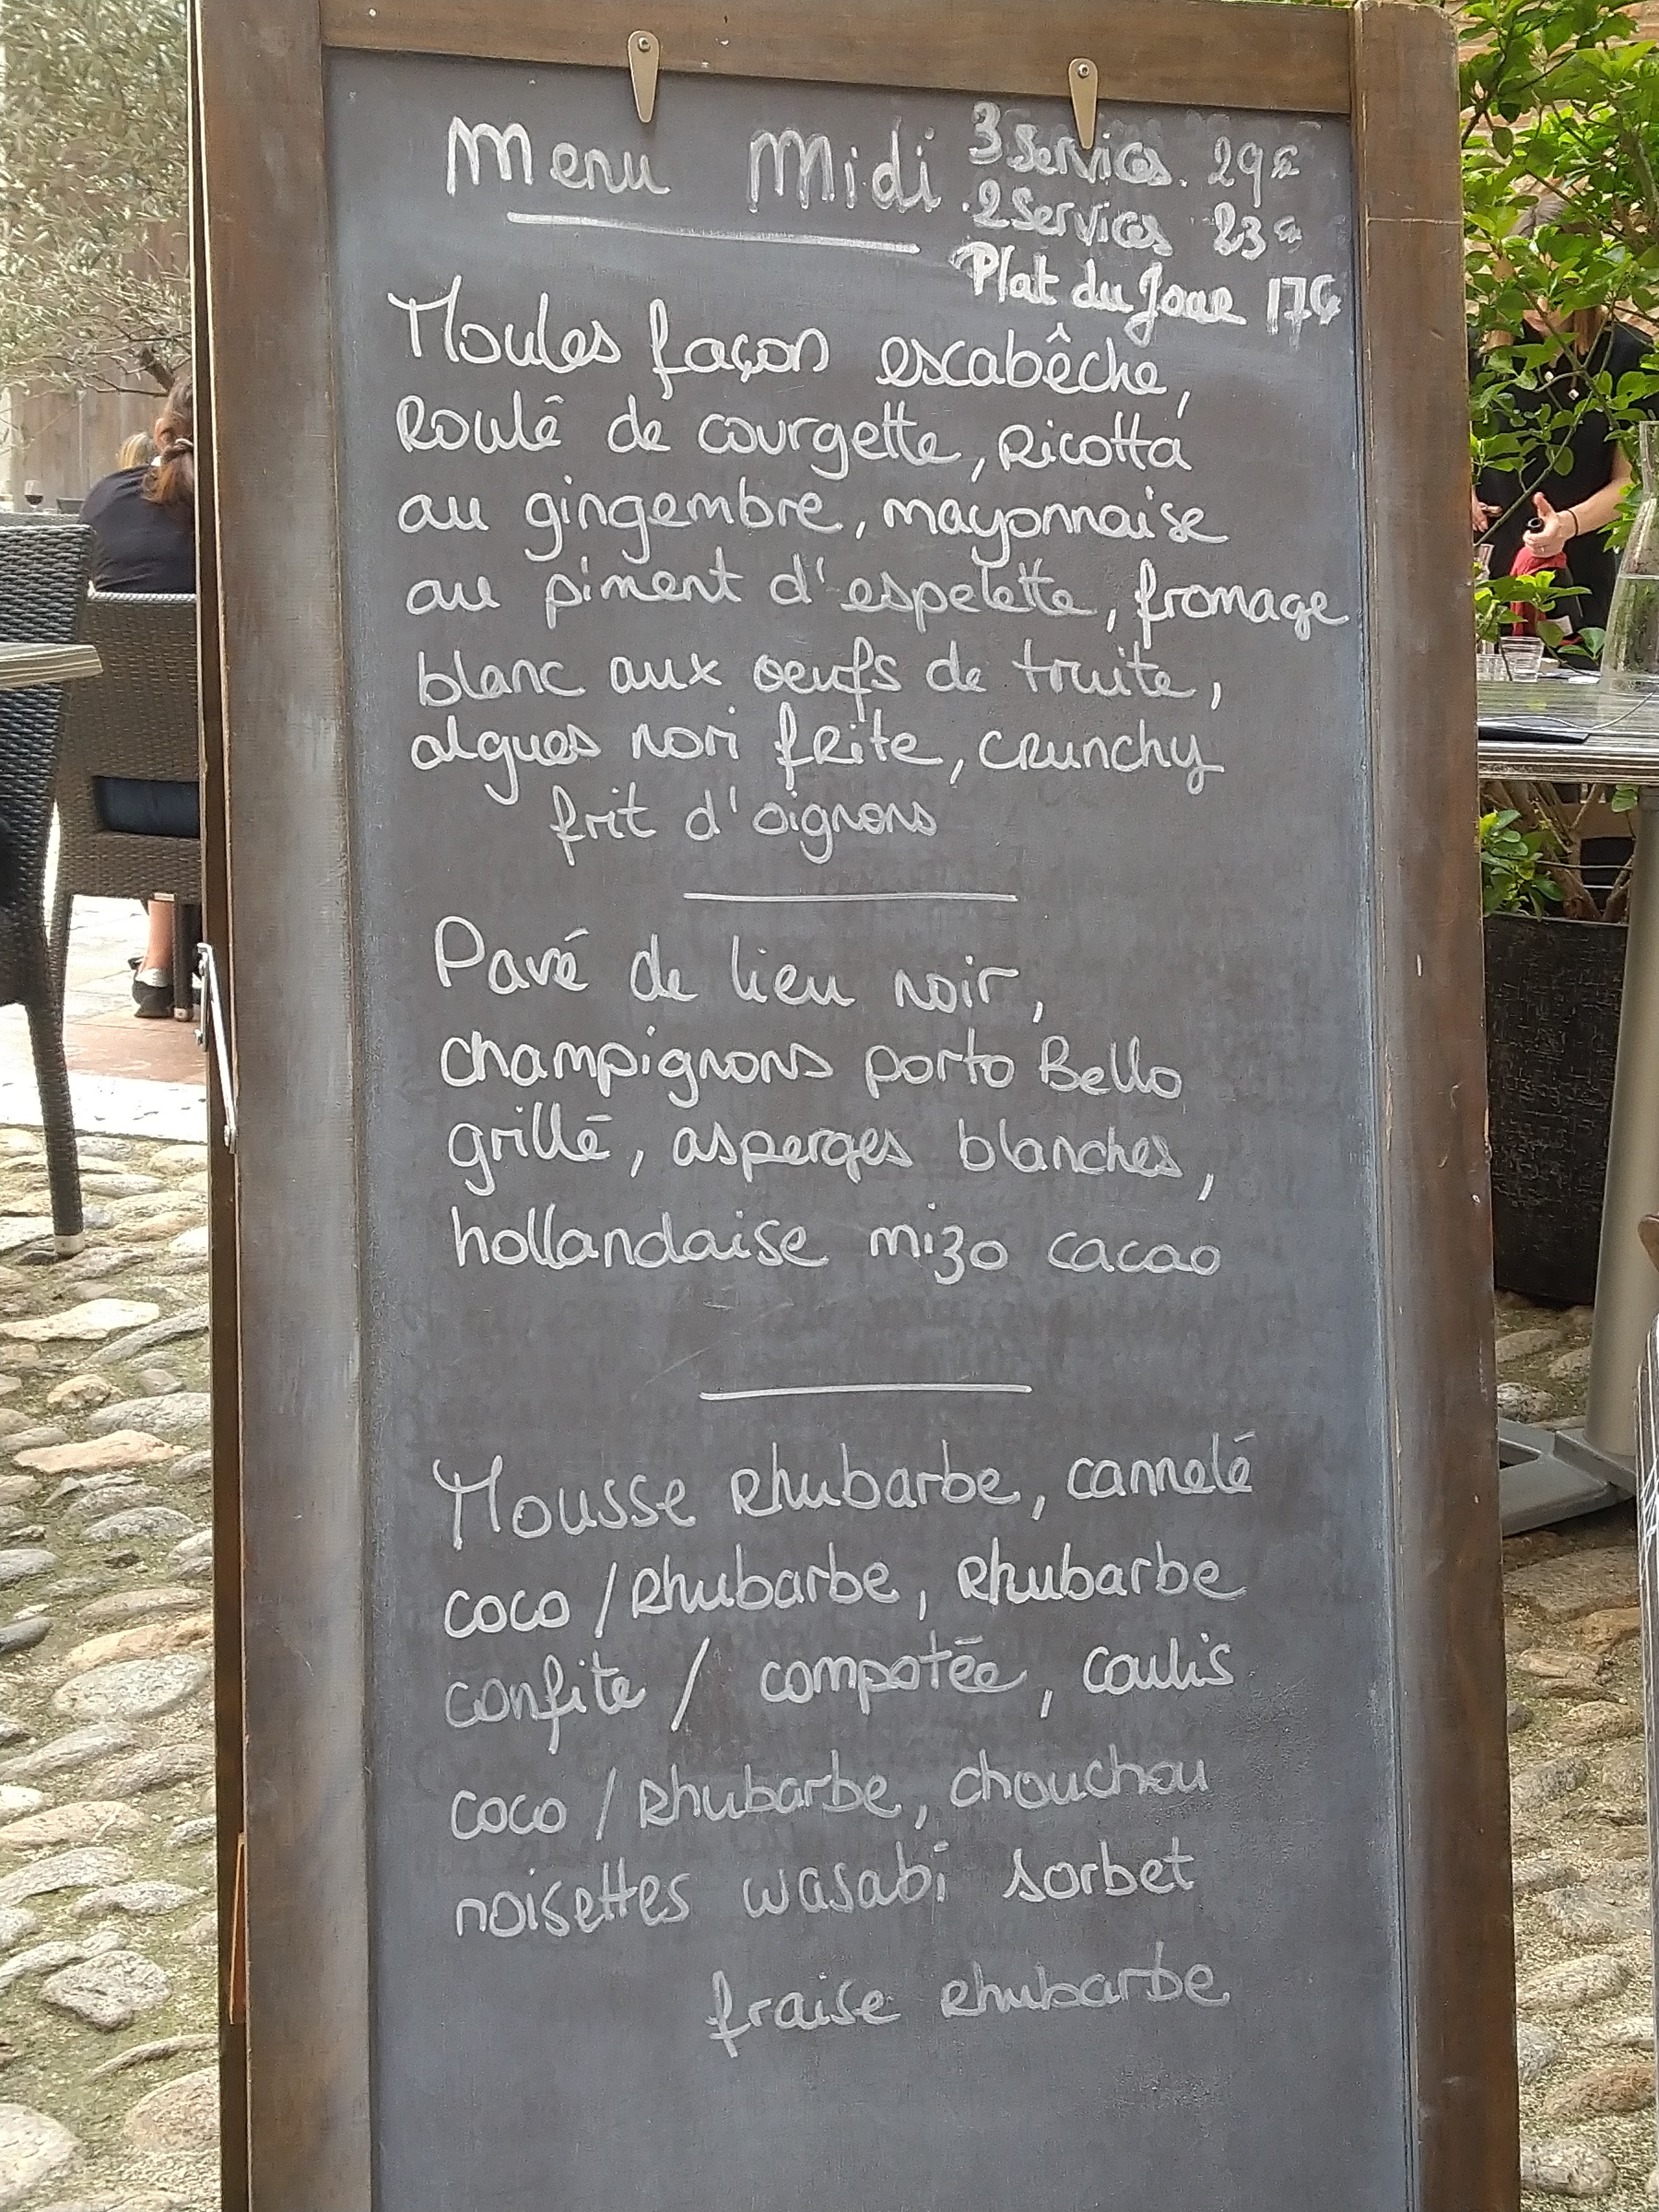 Menu Midi
3 Services. 29€
2 Services 23€
Plat du Jour 17€
Moules façon escabêche,
Roulê de courgette, Ricotta
au gingembre, mayonnaise
au piment d'espelette, fromage
blanc aux oeufs de truite,
algues nori frite, crunchy
frit d'oignons
Pavé de lieu noir,
champignons porto Bello
grillé, asperges blanches,
hollandaise mizo cacao
Mousse Rhubarbe, cannelé
coco / Rhubarbe, Rhubarbe
confite / compotée, coulis
coco / Rhubarbe, chouchou
noisettes wasabi sorbet
fraise Rhubarbe